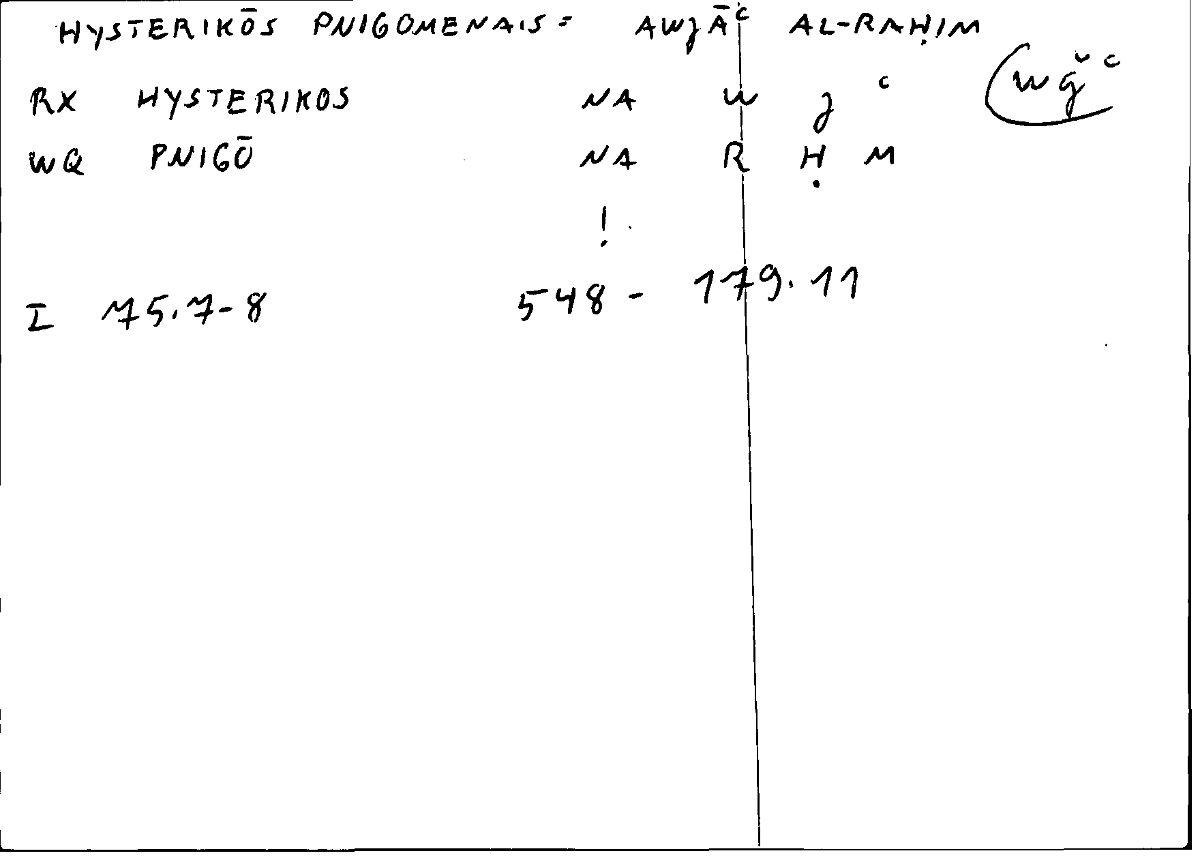 HYSTERIKŌS PNIGOMENAIS = AWJĀʿ AL-RAḤIM
RX HYSTERIKOS NA W J ʿ wǧʿ
WQ PNIGŌ NA R Ḥ M
!
I 75.7-8 548 - 179.11